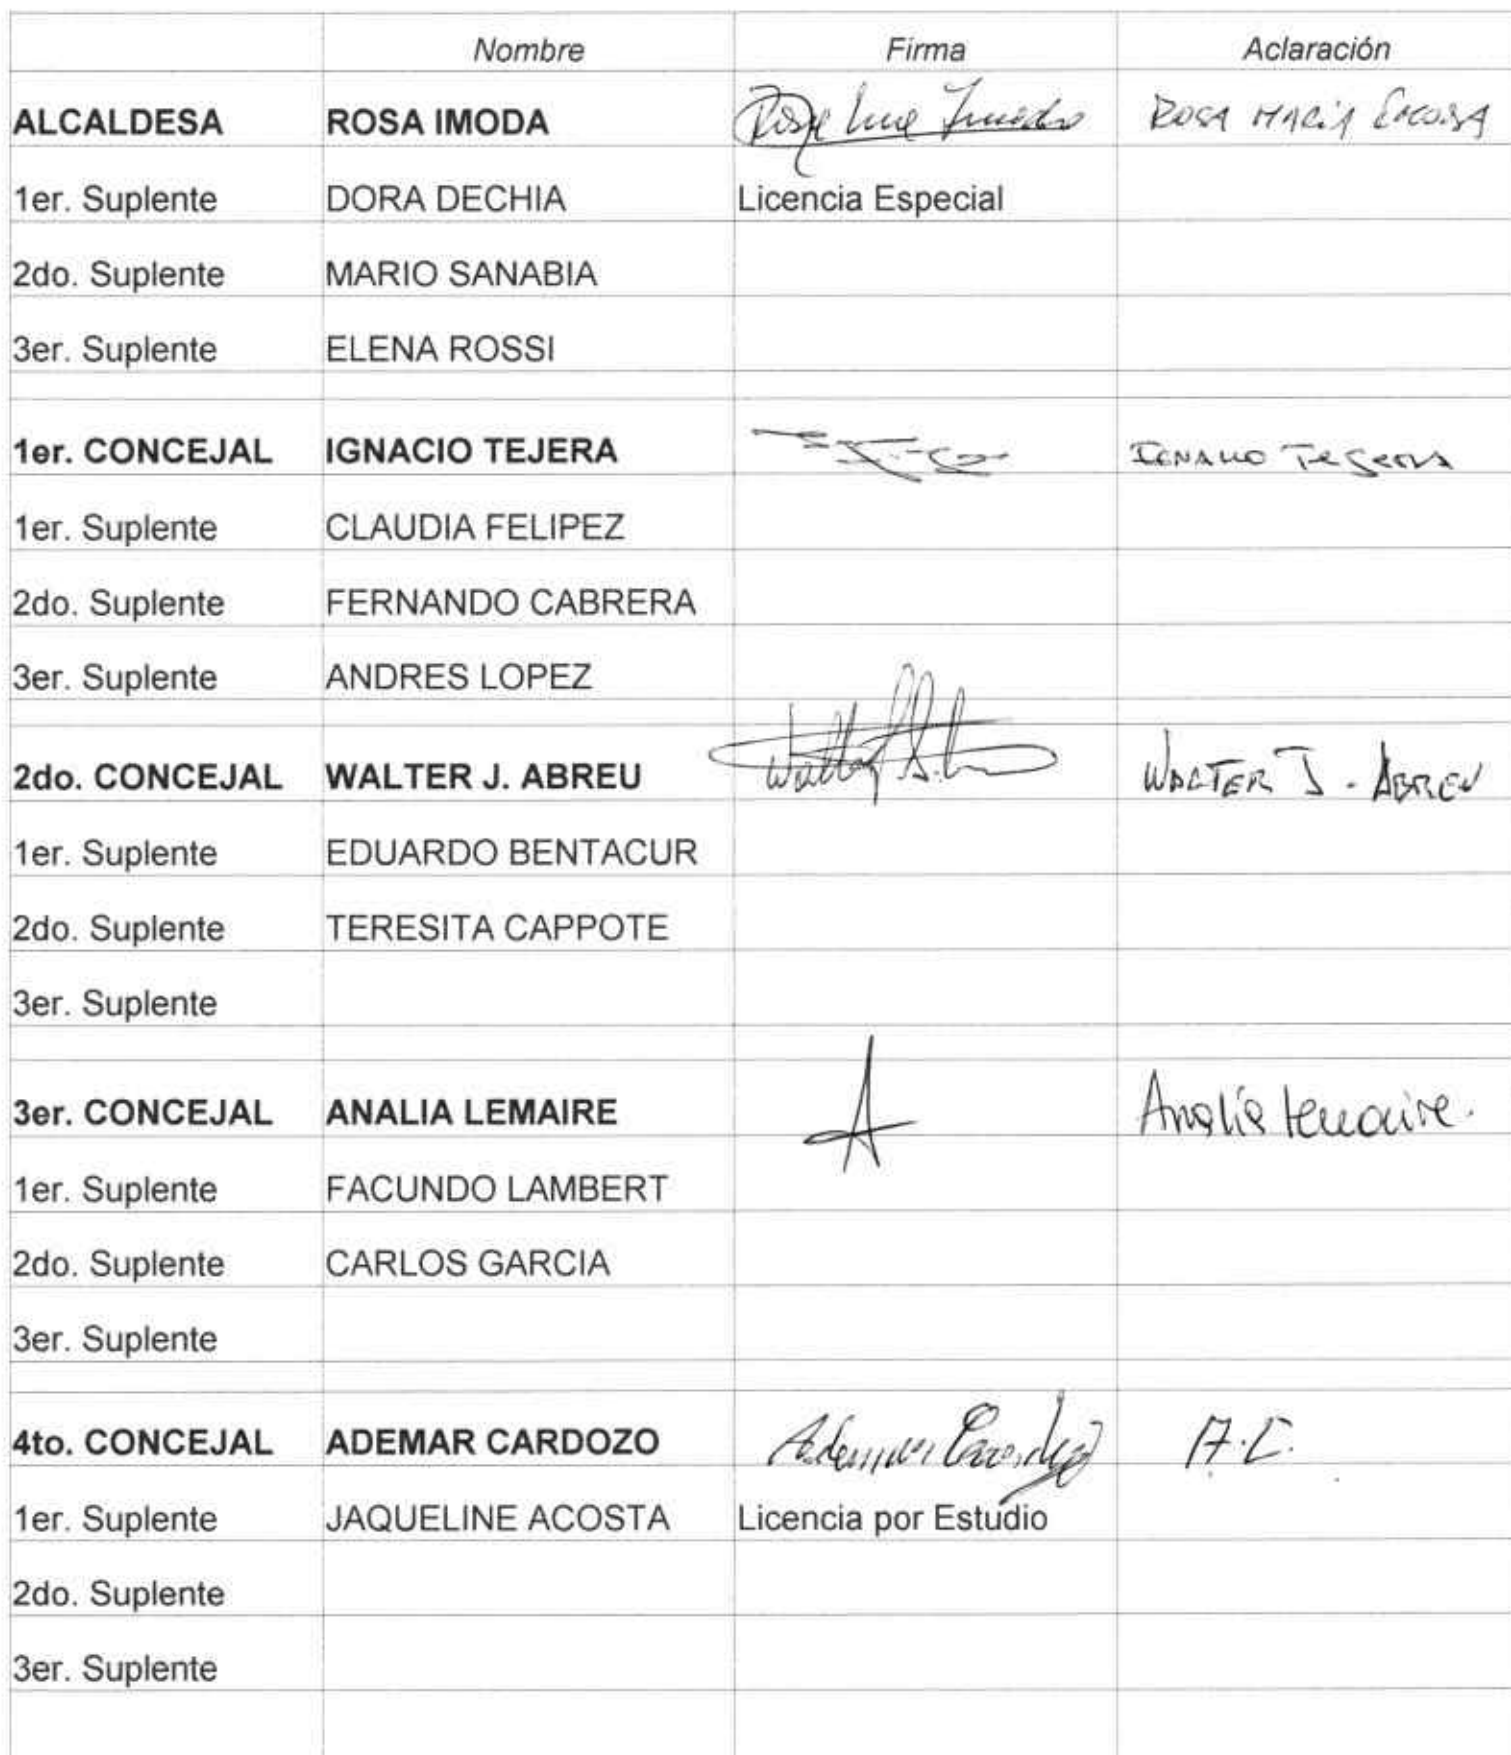 Nombre Firma Aclaración
ALCALDESA ROSA IMODA ROSA MARIA
1er. Suplente DORA DECHIA Licencia Especial
2do. Suplente MARIO SANABIA
3er. Suplente ELENA ROSSI
1er. CONCEJAL IGNACIO TEJERA IGNACIO TEJERA
1er. Suplente CLAUDIA FELIPEZ
2do. Suplente FERNANDO CABRERA
3er. Suplente ANDRES LOPEZ
2do. CONCEJAL WALTER J. ABREU WALTER J. ABREU
1er. Suplente EDUARDO BENTACUR
2do. Suplente TERESITA CAPPOTE
3er. Suplente
3er. CONCEJAL ANALIA LEMAIRE A Analía Lemaire.
1er. Suplente FACUNDO LAMBERT
2do. Suplente CARLOS GARCIA
3er. Suplente
4to. CONCEJAL ADEMAR CARDOZO Ademar Cardozo A.C.
1er. Suplente JAQUELINE ACOSTA Licencia por Estudio
2do. Suplente
3er. Suplente